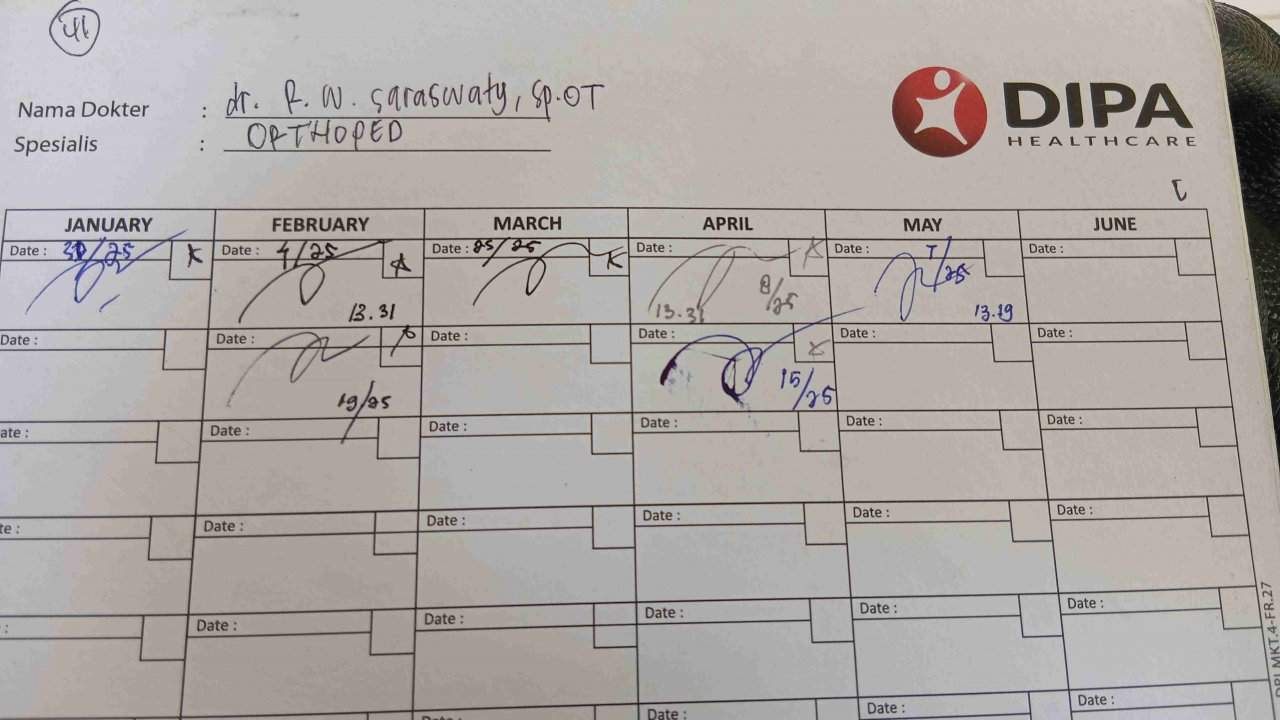 41
Nama Dokter : dr. R. W. Saraswaty, Sp.OT
Spesialis : ORTHOPED
DIPA
HEALTHCARE
JANUARY FEBRUARY MARCH APRIL MAY JUNE
Date : /25 Date : 4/25 Date : 25/25 Date : Date : /25 Date :
13.31 13.31 8/25 13.19
Date : Date : Date : Date : Date : Date :
19/25 15/25
ate : Date : Date : Date : Date : Date :
te : Date : Date : Date : Date : Date :
: Date : Date : Date : Date : Date :
Date : Date : Date : Date :
MKT.4-FR.27